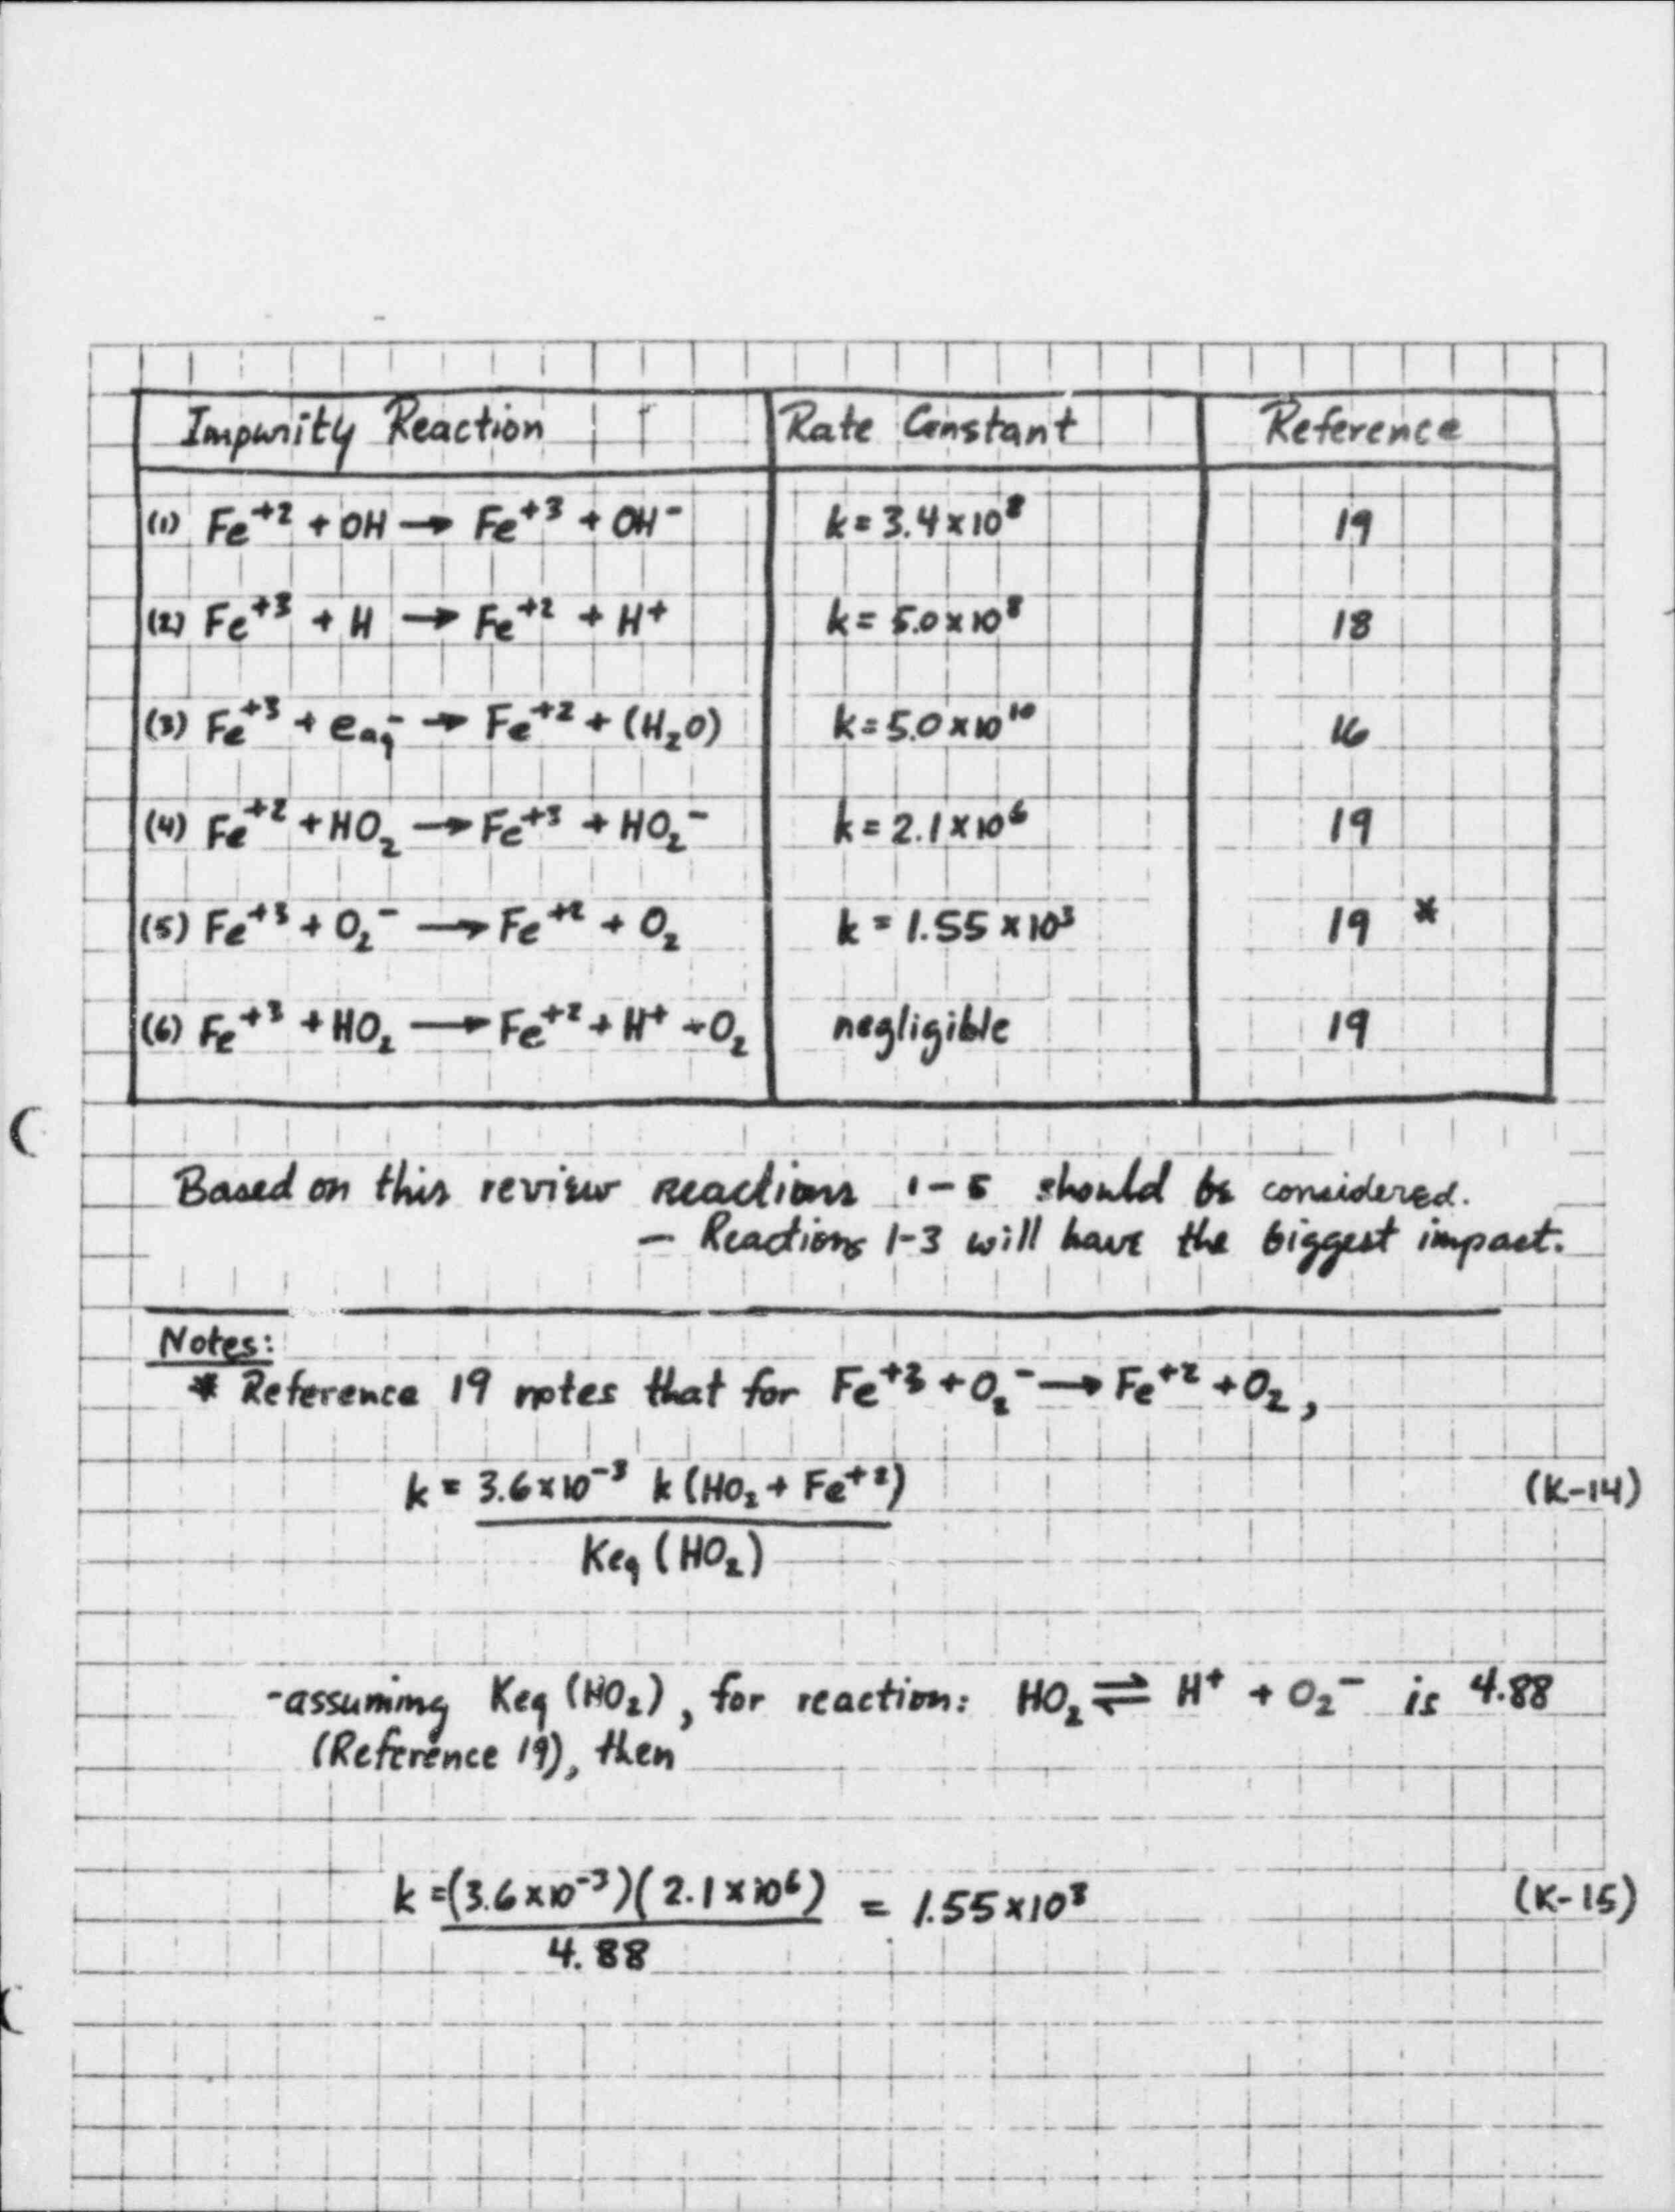 Impurity Reaction Rate Constant Reference
(1) Fe⁺² + OH → Fe⁺³ + OH⁻ k = 3.4 × 10⁸ 19
(2) Fe⁺³ + H → Fe⁺² + H⁺ k = 5.0 × 10⁸ 18
(3) Fe⁺³ + e_aq⁻ → Fe⁺² + (H₂O) k = 5.0 × 10¹⁰ 16
(4) Fe⁺² + HO₂ → Fe⁺³ + HO₂⁻ k = 2.1 × 10⁶ 19
(5) Fe⁺³ + O₂⁻ → Fe⁺² + O₂ k = 1.55 × 10³ 19 *
(6) Fe⁺³ + HO₂ → Fe⁺² + H⁺ + O₂ negligible 19
Based on this review reactions 1-5 should be considered.
— Reactions 1-3 will have the biggest impact.
Notes:
* Reference 19 notes that for Fe⁺³ + O₂⁻ → Fe⁺² + O₂,
k = 3.6×10⁻³ k (HO₂ + Fe⁺²) (K-14)
Keq (HO₂)
-assuming Keq (HO₂), for reaction: HO₂ ⇌ H⁺ + O₂⁻ is 4.88
(Reference 19), then
k = (3.6×10⁻³)(2.1×10⁶) = 1.55×10³ (K-15)
4.88